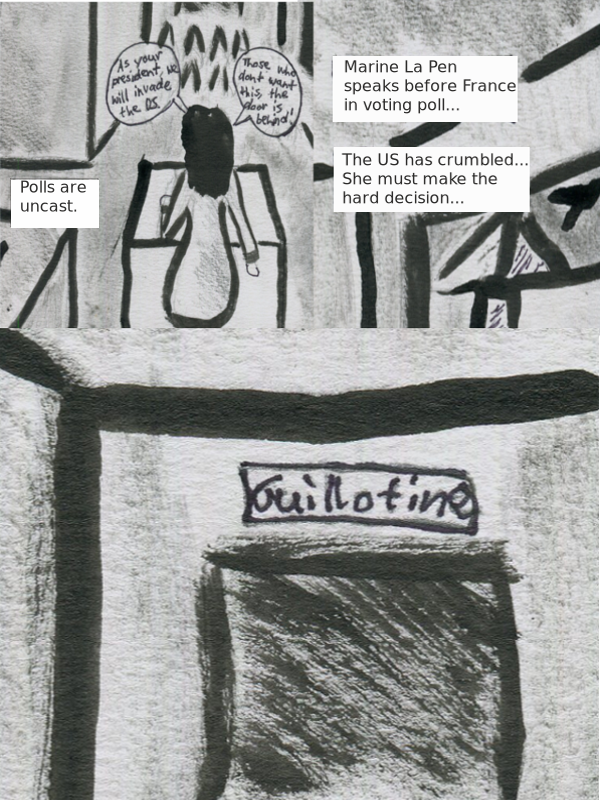 As your
president, we
will invade
the US.
Those who
dont want
this the
door is
behind!
Polls are
uncast.
Marine La Pen
speaks before France
in voting poll...
The US has crumbled...
She must make the
hard decision...
Guillotine